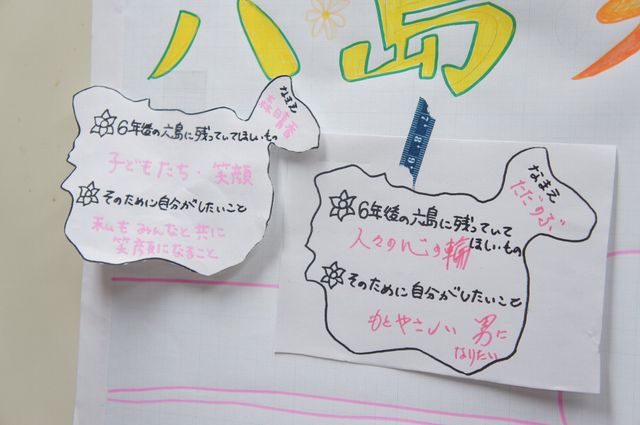 六島
なまえ
森晴香
6年後の六島に残っていてほしいもの
子どもたち・笑顔
そのために自分がしたいこと
私も みんなと共に
笑顔になること
なまえ
ただのぶ
6年後の六島に残っていて
ほしいもの
人々の心の輪
そのために自分がしたいこと
もとやさしい 男に
なりたい